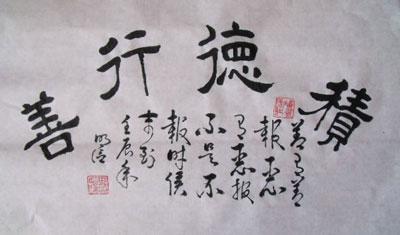 積德行善
善有善
報惡
有惡報
不是不
報時候
未到
壬辰年